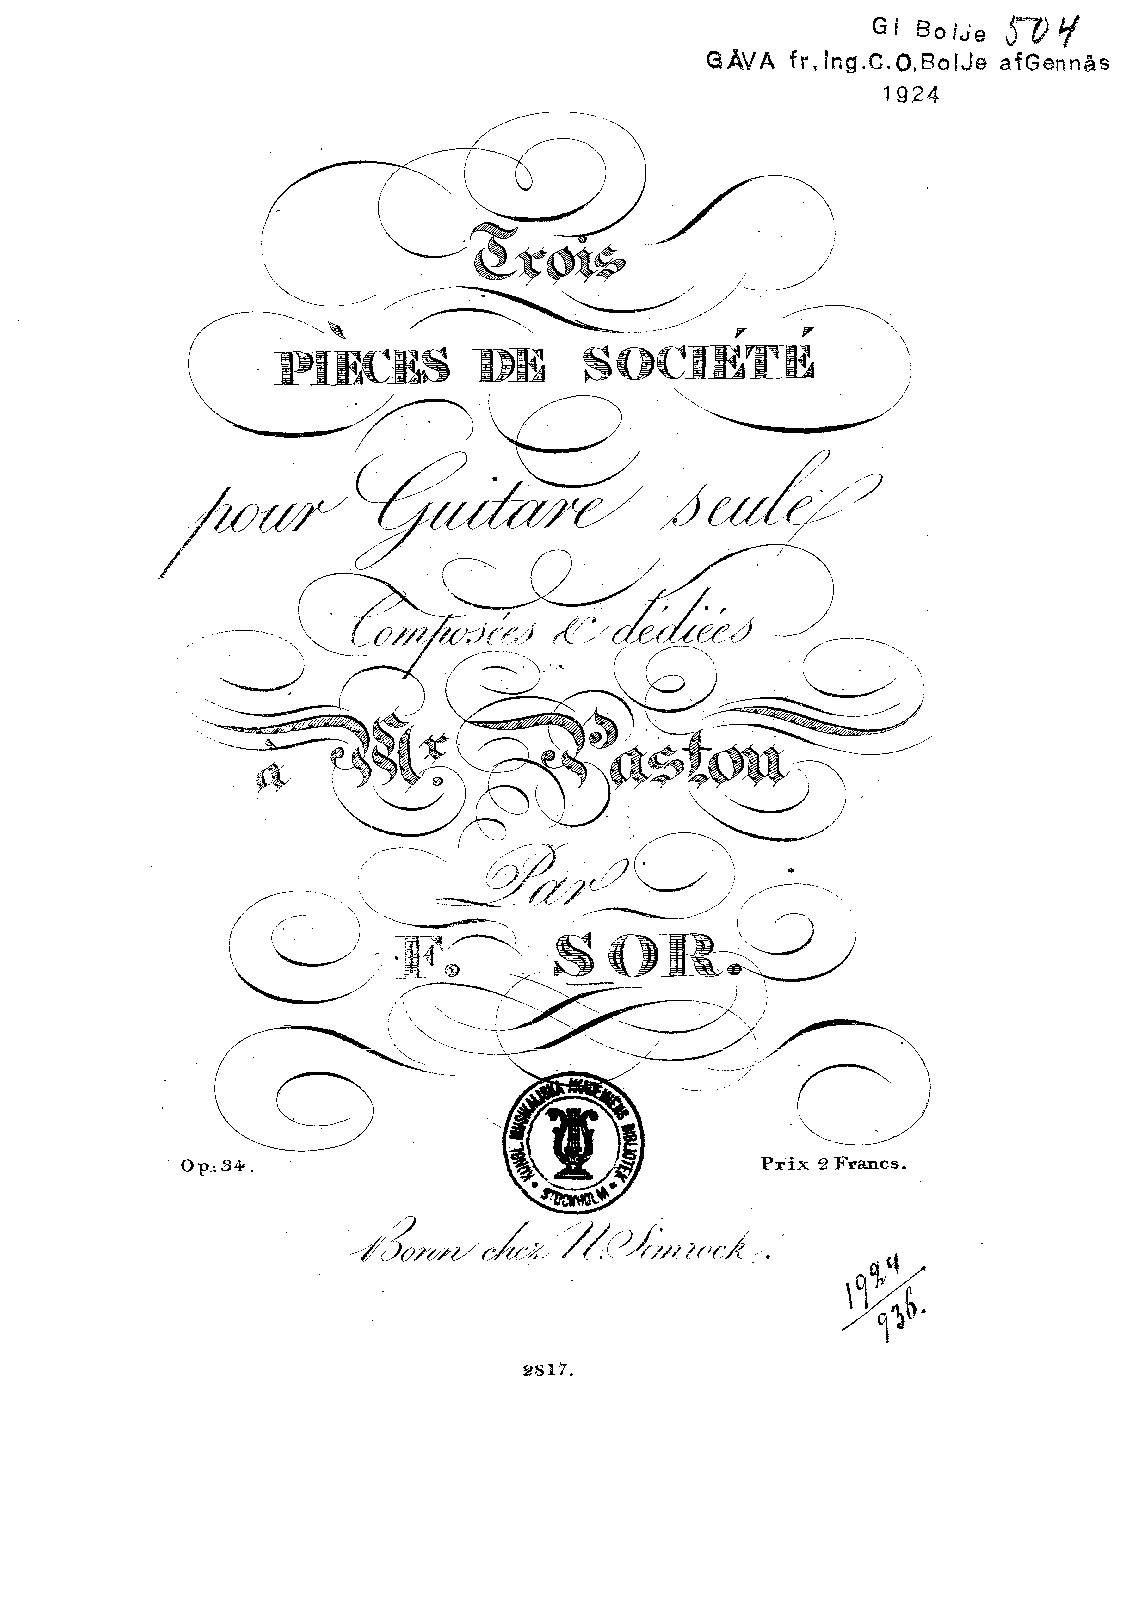 GI Bolje 504
GÅVA fr, ing. C. O, BolJe afGennäs
1924
Trois
PIÈCES DE SOCIÉTÉ
pour Guitare seule
Composées & dédiées
à Mr. Pastou
Par
F. SOR.
KUNGL. MUSIKALISKA AKADEMIENS BIBLIOTEK
• STOCKHOLM •
Op: 34.
Prix 2 Francs.
Bonn chez N. Simrock.
1924
936.
2817.